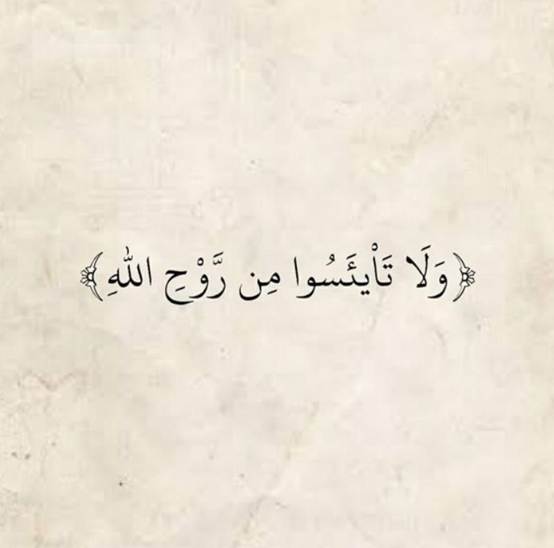 ﴿وَلَا تَأْيْئَسُوا مِن رَّوْحِ اللهِ﴾